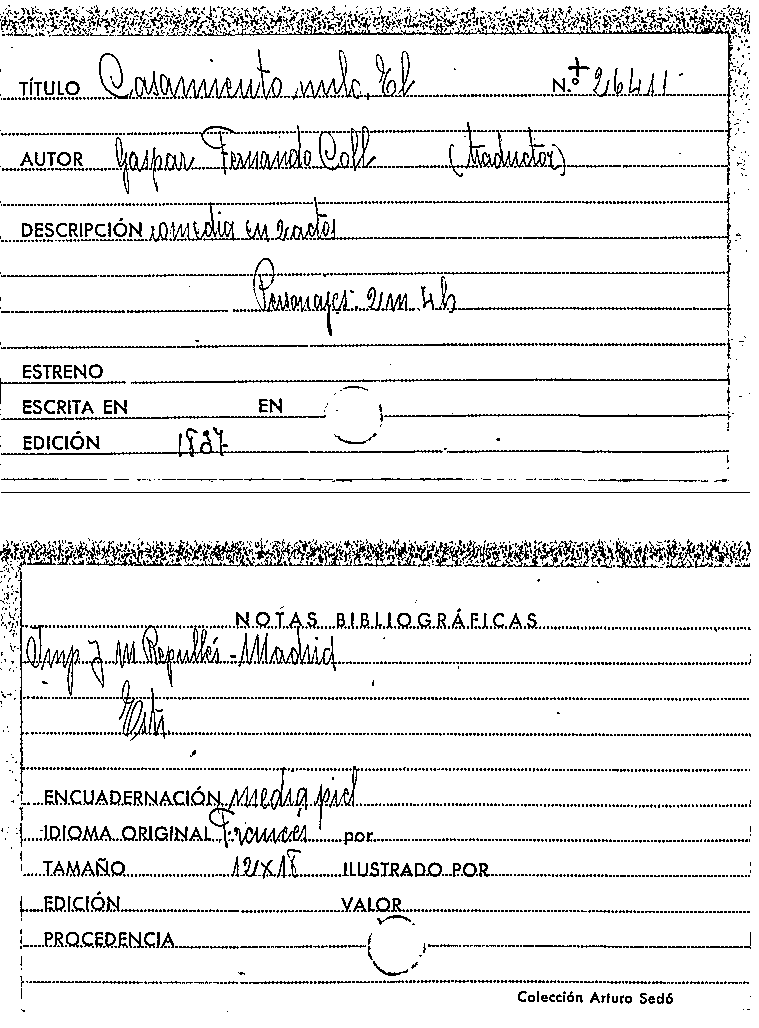 TÍTULO Casamiento nulo, El N.º + 26411
AUTOR Gaspar Fernando Coll (traductor)
DESCRIPCIÓN comedia en 2 actos
Personajes. 2 m 4 h
ESTRENO
ESCRITA EN EN
EDICIÓN 1837
NOTAS BIBLIOGRÁFICAS
Imp J M Repullés - Madrid
ENCUADERNACIÓN media piel
IDIOMA ORIGINAL Francés por
TAMAÑO 12X18 ILUSTRADO POR
EDICIÓN VALOR
PROCEDENCIA
Colección Arturo Sedó